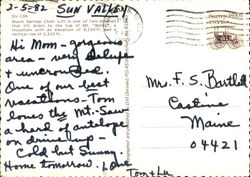 2-5-82 SUN VALLEY
SV-139
Warm Springs Chair Lift is one of two
that lift skiers to the top of Mt. "Baldy", a
mountain with an elevation of 9,150 ft. and a
vertical rise of 3,250 ft.
Hi Mom - gorgeous
area - very
+ uncrowded.
One of our best
vacations. Tom
loves the Mt. Saw
a herd of antelope
on drive up -
Cold but Sunny.
Home tomorrow. Love
Tom + Lu
Mr. F. S. Bartlett
Castine
Maine
04421